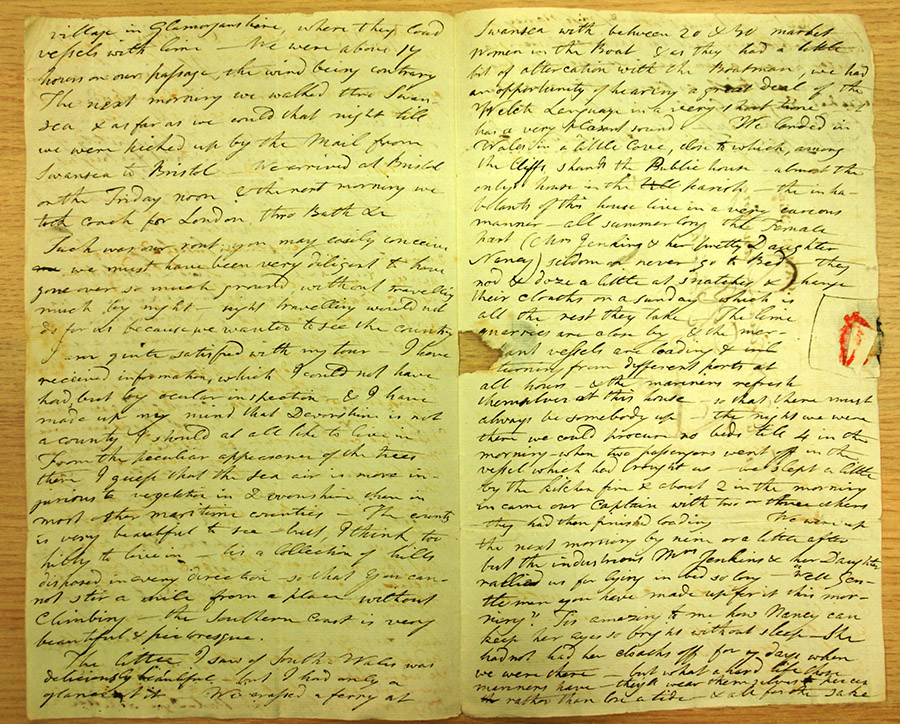 village in Glamorganshire, where they load
vessels with lime – We were above 14
hours on our passage, the wind being contrary
The next morning we walked thro Swan-
sea & as far as we could that night till
we were picked up by the Mail from
Swansea to Bristol We arrived at Bristol
on the Friday noon & the next morning we
took coach for London thro Bath &c
Such was our rout; you may easily conceive
we must have been very diligent to have
gone over so much ground without travelling
much by night – night travelling would not
do for us because we wanted to see the country
I am quite satisfied with my tour – I have
received information, which I could not have
had but by ocular inspection & I have
made up my mind that Devonshire is not
a county I should at all like to live in
From the peculiar appearance of the trees
there I guess that the sea air is more in-
jurious to vegetation in Devonshire than in
most other maritime counties – The county
is very beautiful to see – but, I think, too
hilly to live in – tis a collection of hills
disposed in every direction – so that you can-
not stir a mile from a place without
Climbing – the Southern Coast is very
beautiful & picturesque.
The little I saw of South Wales was
deliciously beautiful – but I had only a
glance at it – We crossed a ferry at
Swansea with between 20 & 30 market
Women in the Boat & as they had a little
bit of altercation with the Boatman, we had
an opportunity of hearing a great deal of the
Welch Language in a very short time – it
has a very pleasant sound We landed in
Wales in a little Cove, close to which, among
the Cliffs, stands the Public house – almost the
only house in the parish – the inha-
bitants of this house live in a very curious
manner – all summer long the female
part (Mrs Jenkins & her pretty Daughter
Nancy) seldom or never go to Bed – they
nod & doze a little at snatches, & change
their cloaths on a sunday which is
all the rest they take – The lime
quarries are close by & the mer-
ant vessels are loading &
turning from different ports at
all hours – & the manners refresh
themselves at this house – so that there must
always be somebody up – the night we were
there we could procure no beds till 4 in the
morning – when two passengers went off in the
vessel which had brought us – we slept a little
by the kitchen fire & about 2 in the morning
in came our Captain with two or three others
they had then finish'd loading We were up
the next morning by nine or a little after
but the industrious Mrs Jenkins & her Daughter
rallied us for lying in bed so long – "Well Gen-
tlemen you have made up for it this mor-
ning" Tis amazing to me how Nancy can
keep her eyes so bright without sleep – She
had not had her cloaths off for days when
we were there – but what a hard life those
manners have – they'll wear themselves
rather than lose a tide – & all for the sake